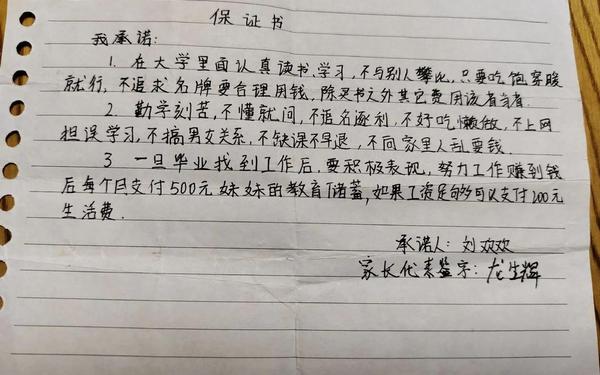 保证书
我承诺:
1. 在大学里面认真读书、学习,不与别人攀比,只要吃饱穿暖
就行,不追求名牌要合理用钱,除买书之外其它费用该省则省.
2. 勤学刻苦,不懂就问,不追名逐利,不好吃懒做,不上网
担误学习,不搞男女关系,不缺课不早退,不向家里人乱要钱.
3 一旦毕业找到工作后,要积极表现,努力工作赚到钱
后每个月支付500元妹妹的教育储蓄,如果工资足够多可以支付200元
生活费.
承诺人:刘欢欢
家长代表签字:龙生辉